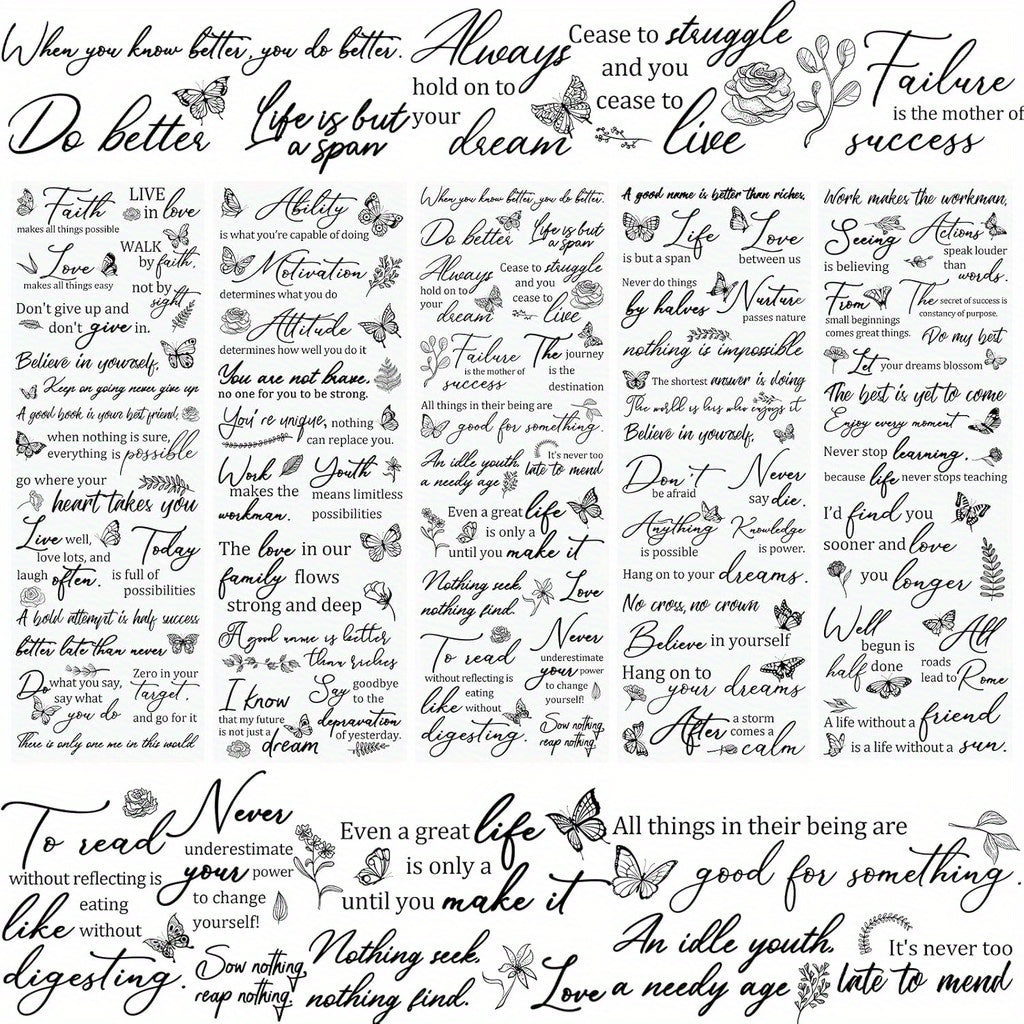 When you know better, you do better.
Do better
Life is but
a span
Always
hold on to
your
dream
Cease to struggle
and you
cease to
live
Failure
is the mother of
success
Faith
makes all things possible
LIVE
in love
Love
makes all things easy
WALK
by faith,
not by
sight
Don't give up and
don't give in.
Believe in yourself,
Keep on going never give up
A good book is your best friend,
when nothing is sure,
everything is possible
go where your
heart takes you
Live well,
love lots, and
laugh often.
Today
is full of
possibilities
A bold attempt is half success
better late than never
Do what you say,
say what
you do
Zero in your
target,
and go for it
There is only one me in this world
Ability
is what you're capable of doing
Motivation
determines what you do
Attitude
determines how well you do it
You are not brave,
no one for you to be strong.
You're unique, nothing
can replace you.
Work
makes the
workman.
Youth
means limitless
possibilities
The love in our
family flows
strong and deep
A good name is better
than riches
I know
that my future
is not just a
dream
Say goodbye
to the
depravation
of yesterday.
When you know better, you do better.
Do better
Life is but
a span
Always
hold on to
your
dream
Cease to struggle
and you
cease to
live
Failure
is the mother of
success
The journey
is the
destination
All things in their being are
good for something.
An idle youth,
a needy age
It's never too
late to mend
Even a great life
is only a
until you make it
Nothing seek,
nothing find.
Love
To read
without reflecting is
like eating
without
digesting.
Never
underestimate
your power
to change
yourself!
Sow nothing,
reap nothing.
A good name is better than riches,
Life
is but a span
Love
between us
Never do things
by halves
Nurture
passes nature
nothing is impossible
The shortest answer is doing
The world is his who enjoys it
Believe in yourself,
Don't
be afraid
Never
say die.
Anything
is possible
Knowledge
is power.
Hang on to your dreams.
No cross, no crown
Believe in yourself
Hang on to
your dreams
After a storm
comes a
calm
Work makes the workman,
Seeing
is believing
Actions
speak louder
than
words.
From
small beginnings
comes great things.
The secret of success is
constancy of purpose.
Do my best
Let your dreams blossom
The best is yet to come
Enjoy every moment
Never stop learning,
because life never stops teaching
I'd find you
sooner and love
you longer
Well
begun is
half done
All
roads
lead to Rome
A life without a friend
is a life without a sun.
To read
without reflecting is
eating
like without
digesting.
Never
underestimate
your power
to change
yourself!
Sow nothing,
reap nothing.
Even a great life
is only a
until you make it
Nothing seek,
nothing find.
Love
All things in their being are
good for something.
An idle youth,
a needy age
It's never too
late to mend